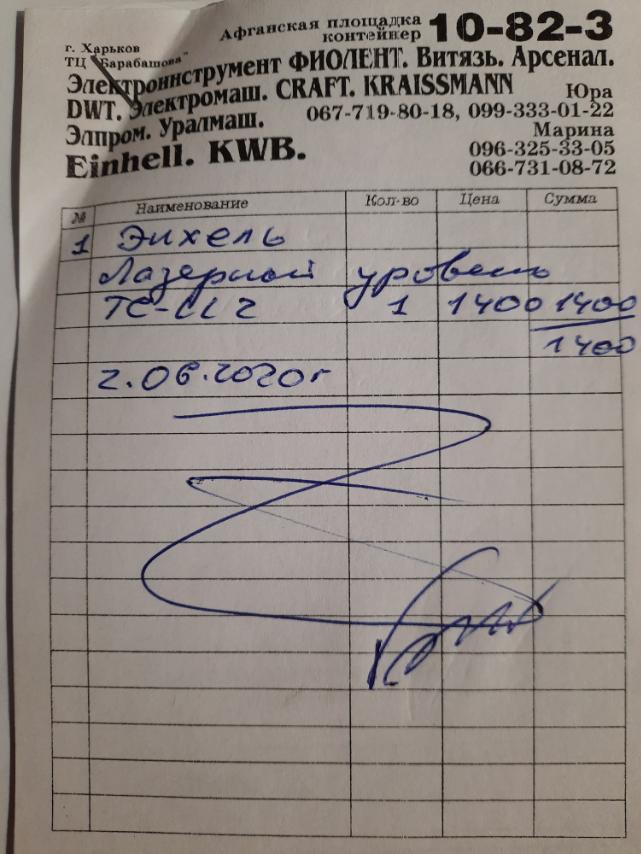 Афганская площадка
контейнер 10-82-3
г. Харьков
ТЦ "Барабашова"
Электроинструмент ФИОЛЕНТ. Витязь. Арсенал.
DWT. Электромаш. CRAFT. KRAISSMANN
Элпром. Уралмаш.
Einhell. KWB.
Юра
067-719-80-18, 099-333-01-22
Марина
096-325-33-05
066-731-08-72
№ Наименование Кол-во Цена Сумма
1 Энхель
Лазерный уровень
TC-LL 2 1 1400 1400
1400
2.06.2020г